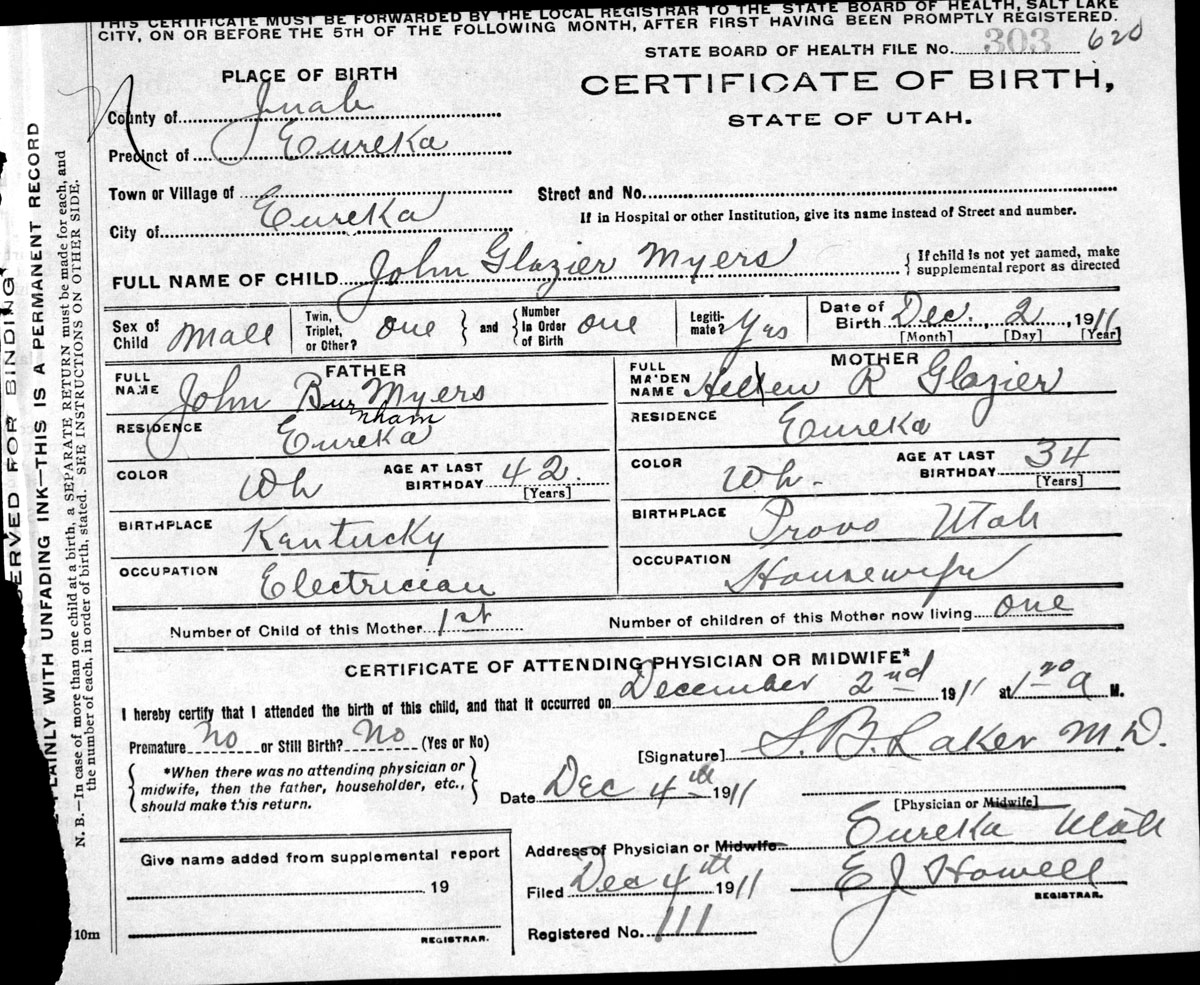 THIS CERTIFICATE MUST BE FORWARDED BY THE LOCAL REGISTRAR TO THE STATE BOARD OF HEALTH, SALT LAKE
CITY, ON OR BEFORE THE 5TH OF THE FOLLOWING MONTH, AFTER FIRST HAVING BEEN PROMPTLY REGISTERED.
STATE BOARD OF HEALTH FILE No. 303 620
PLACE OF BIRTH
CERTIFICATE OF BIRTH,
STATE OF UTAH.
County of Juab
Precinct of Eureka
Town or Village of
Street and No.
City of Eureka
If in Hospital or other Institution, give its name instead of Street and number.
FULL NAME OF CHILD John Glazier Myers { If child is not yet named, make
supplemental report as directed
Sex of Child Male Twin, Triplet, or Other? one } and { Number In Order of Birth one Legiti-mate? Yas Date of Birth Dec., 2, 1911
[Month] [Day] [Year]
FATHER MOTHER
FULL NAME John Burnham Myers FULL MAIDEN NAME Hellen R Glazier
RESIDENCE Eureka RESIDENCE Eureka
COLOR Wh AGE AT LAST BIRTHDAY 42. [Years] COLOR Wh. AGE AT LAST BIRTHDAY 34 [Years]
BIRTHPLACE Kantucky BIRTHPLACE Provo Utah
OCCUPATION Electrician OCCUPATION Housewife
Number of Child of this Mother 1st Number of children of this Mother now living one
CERTIFICATE OF ATTENDING PHYSICIAN OR MIDWIFE*
I hereby certify that I attended the birth of this child, and that it occurred on December 2nd 1911 at 1 20 a M.
Premature No or Still Birth? No (Yes or No)
[Signature] S. B. Laker M.D.
{ *When there was no attending physician or
midwife, then the father, householder, etc.,
should make this return. }
Date Dec 4th 1911
[Physician or Midwife]
Address of Physician or Midwife Eureka Utah
Give name added from supplemental report
19
REGISTRAR.
Filed Dec 4th 1911 E J Howell
REGISTRAR.
Registered No. 111
10m
SERVED FOR BINDING
PLAINLY WITH UNFADING INK—THIS IS A PERMANENT RECORD
N. B.—In case of more than one child at a birth, a SEPARATE RETURN must be made for each, and
the number of each, in order of birth, stated. SEE INSTRUCTIONS ON OTHER SIDE.